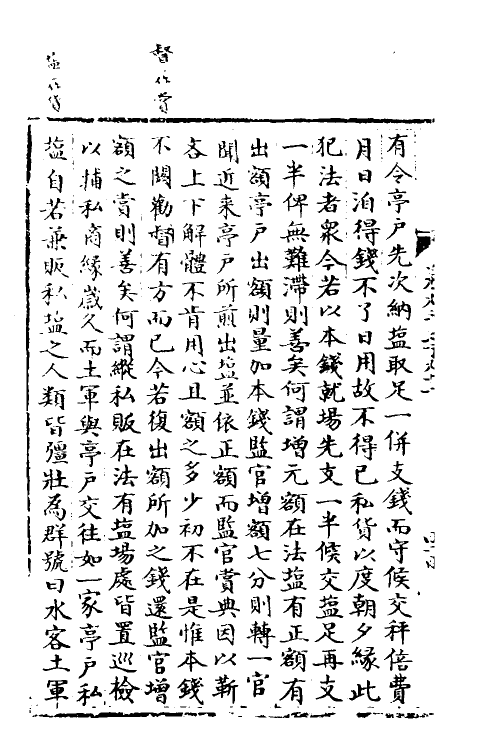 有令亭戸先次納塩取足一併支錢而守候交秤倍費
月日洎得錢不了日用故不得已私貨以度朝夕緣此
犯法者衆今若以本錢就場先支一半候交塩足再支
一半俾無難滯則善矣何謂增元額在法塩有正額有
出額亭戸出額則量加本錢監官增額七分則轉一官
聞近来亭戸所煎出塩並依正額而監官賞典因以靳
吝上下解體不肯用心且額之多少初不在是惟本錢
不闕勸督有方而已今若復出額所加之錢還監官增
額之賞則善矣何謂縱私販在法有塩場處皆置巡檢
以捕私商緣歲久而土軍與亭戸交往如一家亭戸私
塩自若兼販私塩之人類皆彊壯為群號曰水客土軍
督作賞